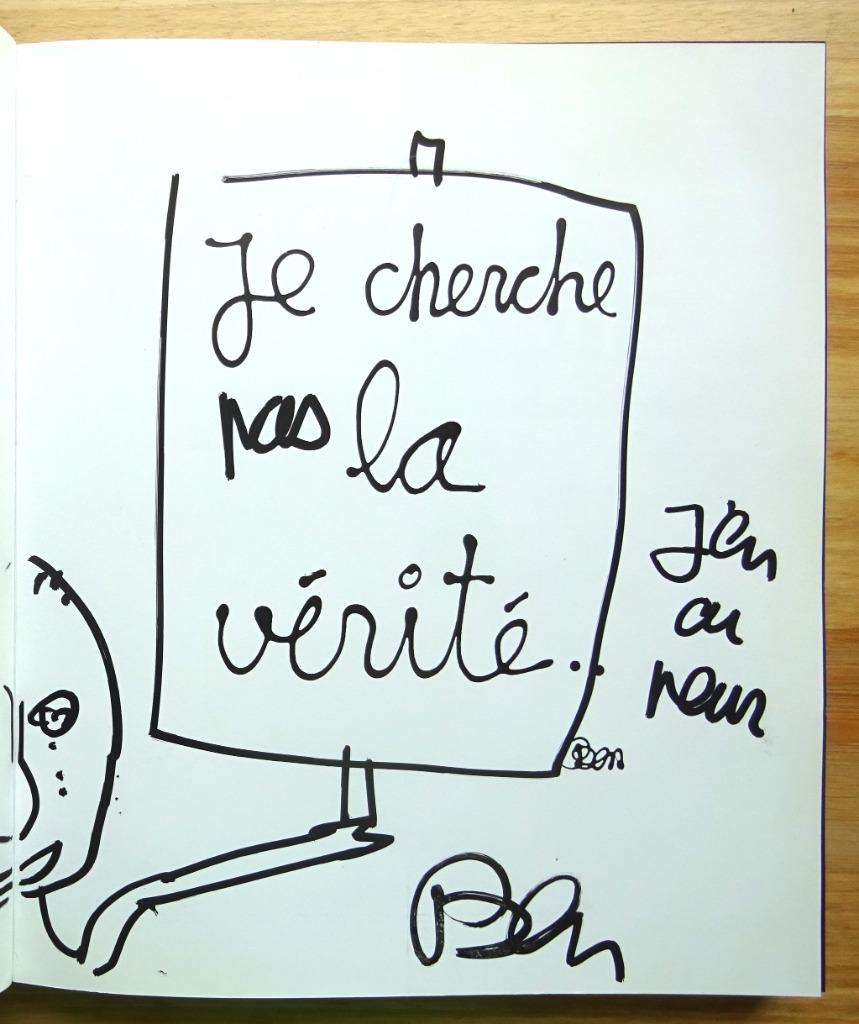 Je cherche
pas la
vérité..
J'en
ai
peur
Ben
Ben